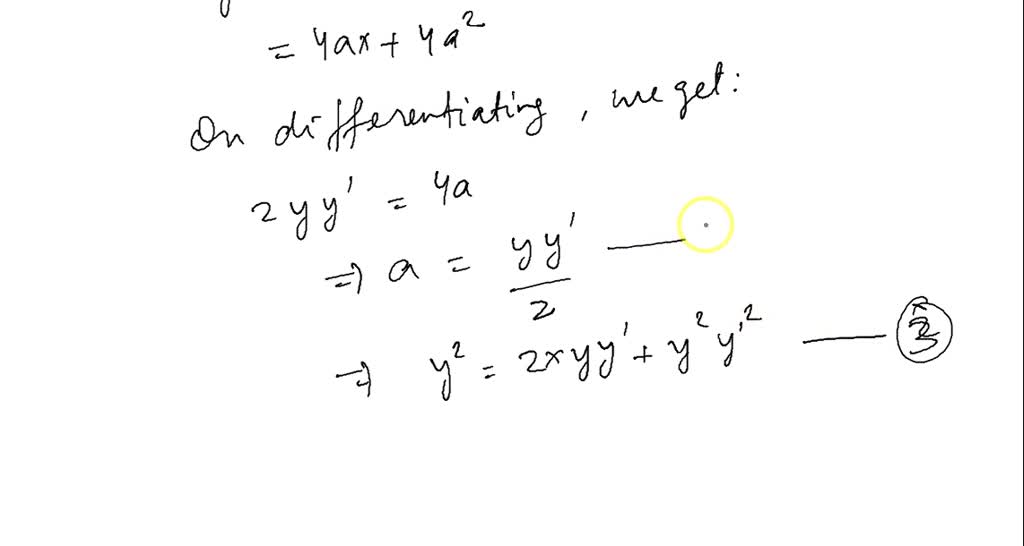 = 4ax + 4a²
On differentiating, we get:
2yy' = 4a
⇒ a = yy'/2 —
⇒ y² = 2xyy' + y²y'² —